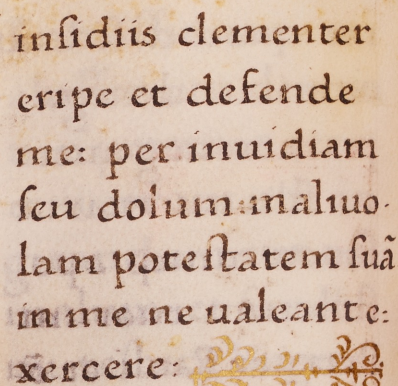 inſidiis clementer
eripe et defende
me: per inuidiam
ſeu dolum maliuo-
lam poteſtatem ſuã
in me ne ualeant e:
xercere: